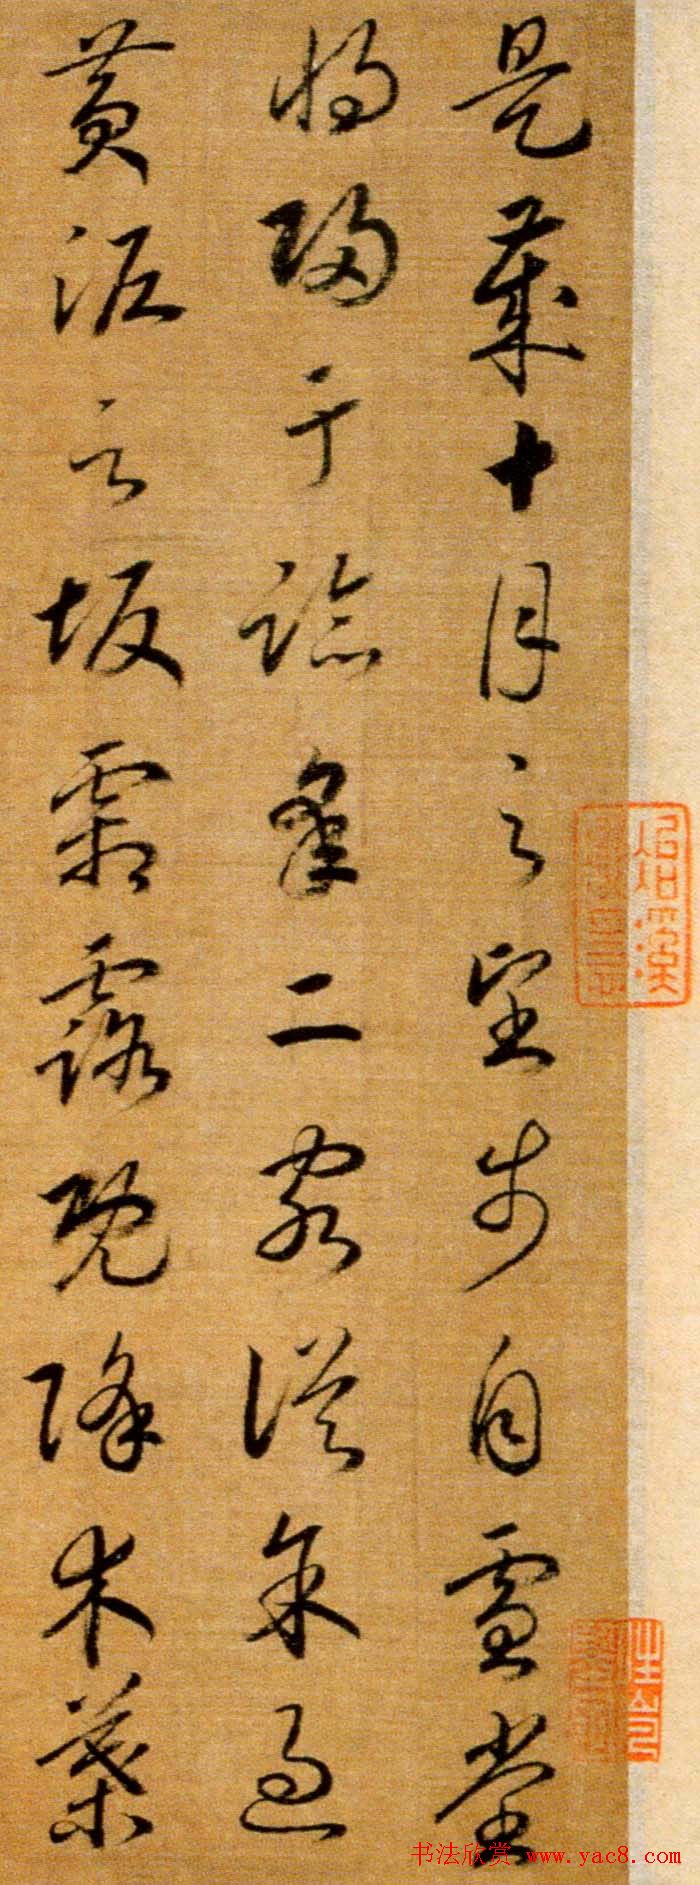 是歲十月之望步自雪堂
將歸于臨皋二客從余過
黃泥之坂霜露既降木葉
书法欣赏 www.yac8.com